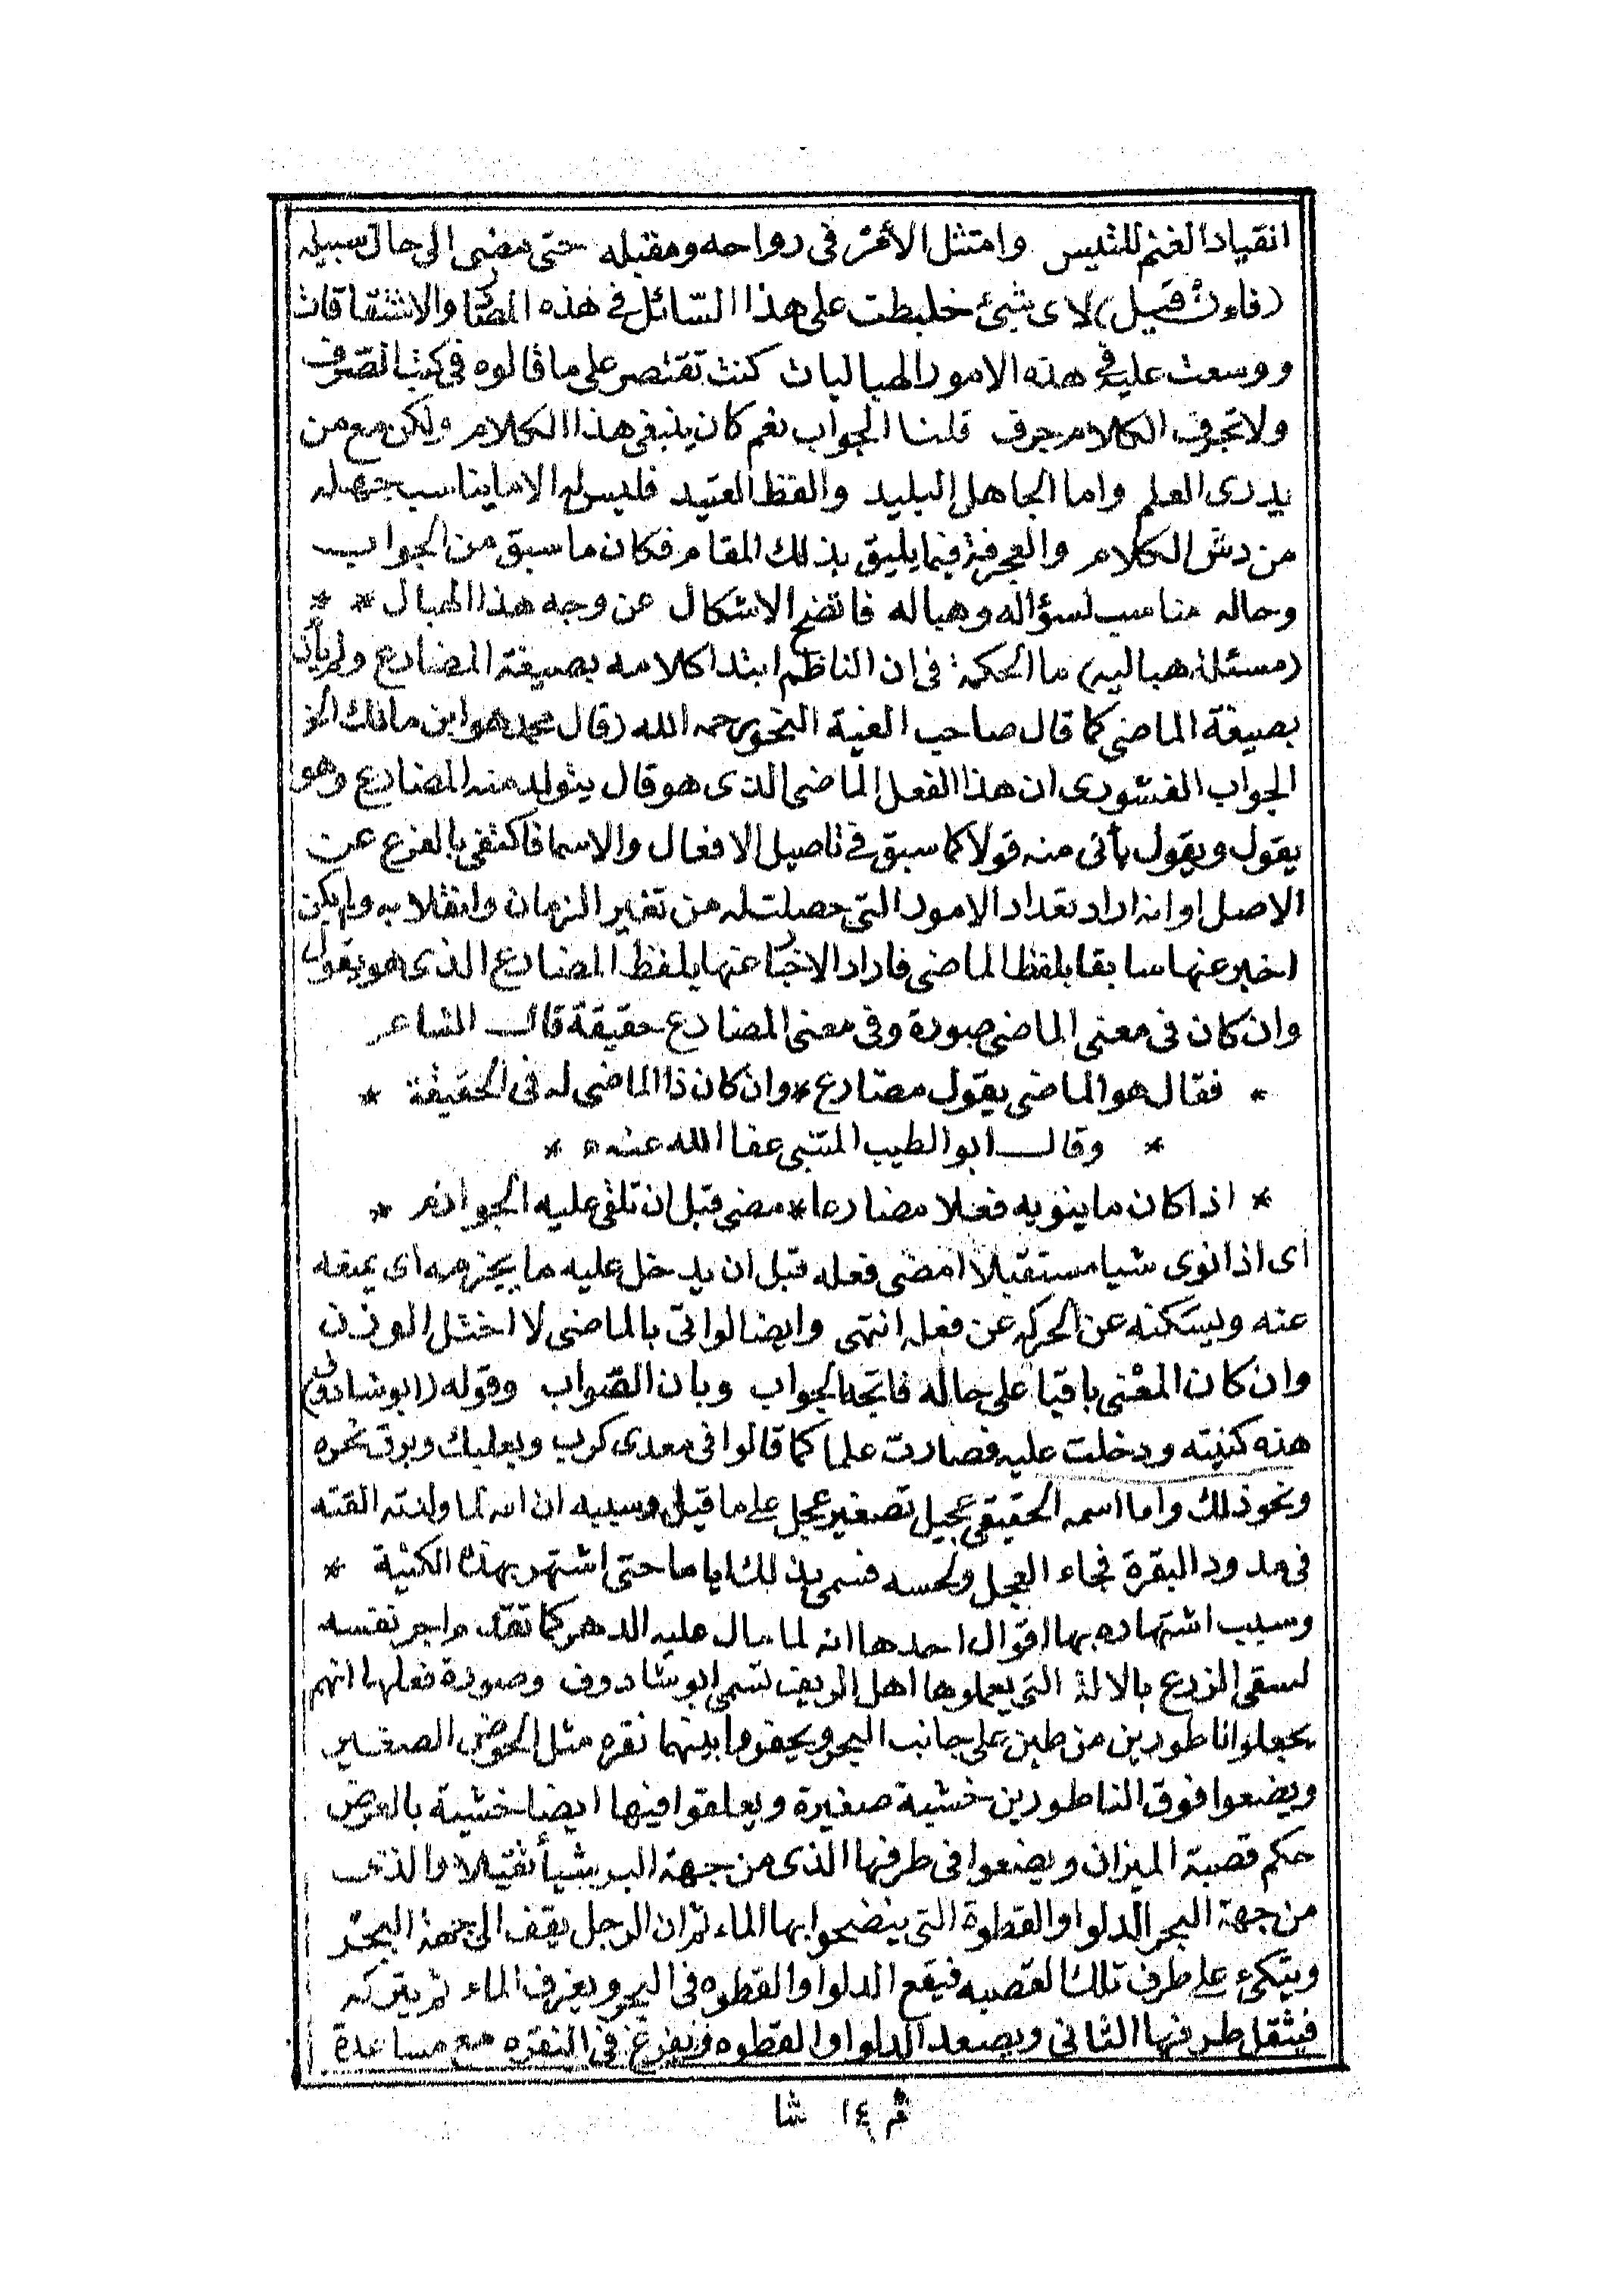 انقياد الغنم للتيس وامتثل الأمر في رواحه ومقبله حتى مضى الى حال سبيله
(فان قيل) لاى شئ خلبطت على هذا السائل في هذه المصا والاشتقاقات
ووسعت عليه في هذه الامور الهباليات كنت تقتصر على ما قالوه في كتب الصرف
ولا تجرف الكلام جرف قلنا الجواب نعم كان ينبغى هذا الكلام ولكن مع من
يدرى العلم واما الجاهل البليد والفظ العتيد فليس له الا ما يناسب جهله
من دش الكلام والعجرفة فيما يليق بذلك المقام فكان ما سبق من الجواب
وحاله مناسب لسؤاله وهباله فاتضح الاشكال عن وجه هذا الهبال * *
(مسئلة هباليه) ما الحكمة في ان الناظم ابتدا كلامه بصيغة المضارع ولم يأت
بصيغة الماضى كما قال صاحب الفية النحو رحمه الله (قال محمد هو ابن مالك الخ
الجواب الفشورى ان هذا الفعل الماضى الذى هو قال يتولد منه المضارع وهو
يقول ويقول يأتى منه قولا كما سبق في تاصيل الافعال والاسما فاكتفى بالفرع عن
الاصل او انه اراد تعداد الامور التى حصلت له من تغير الزمان وانقلابه ولم يكن
اخبر عنها سابقا بلفظ الماضى فاراد الاخبا عنها بلفظ المضارع الذى هو يقول
وان كان في معنى الماضى صورة وفى معنى المضارع حقيقة قال الشاعر
* فقال هو الماضى يقول مضارع * وان كان ذا الماضى له في الحقيقة *
* وقال ابو الطيب المتنبى عفا الله عنه * *
* اذا كان ما ينويه فعلا مضارعا * مضى قبل ان تلقى عليه الجوازم *
اى اذا نوى شيا مستقبلا امضى فعله قبل ان يدخل عليه ما يجزمه اى يمنعه
عنه ويسكنه عن الحركه عن فعله انتهى وايضا لو اتى بالماضى لا اختل الوزن
وان كان المعنى باقيا على حاله فاتجه الجواب وبان الصواب وقوله (ابو شادوف)
هذه كنيته ودخلت عليه فصارت علما كما قالوا في معدى كرب وبعلبك وبرق نحره
ونحو ذلك واما اسمه الحقيقى عجيل تصغير عجل على ما قيل وسببه ان امه لما ولدته القته
في مدود البقرة فجاء العجل ولحسه فسمى بذلك اياما حتى اشتهر بهذه الكنية *
وسبب اشتهاره بها اقوال احدها انه لما مال عليه الدهر كما تقدم اجر نفسه
لسقى الزرع بالالة التى يعملوها اهل الريف تسمى ابو شادوف وصورة فعلها انهم
يجعلوا ناطورين من طين على جانب البحر ويحفروا بينهما نقره مثل الحوض الصغير
ويضعوا فوق الناطورين خشبة صغيرة ويعلقوا فيها ايضا خشبة بالعرض
حكم قصبة الميزان ويضعوا في طرفها الذى من جهة البر شيأ ثقيلا والذى
من جهة البحر الدلو او القطوة التى ينضحوا بها الماء ثم ان الرجل يقف الى جهة البحر
ويتكىء على طرف تلك القصبه فيقع الدلو او القطوه في البحر ويغرف الماء ثم يتركه
فيثقل طرفها الثانى ويصعد الدلو او القطوه ويفرغ في النقره مع مساعدة
١٤ شا